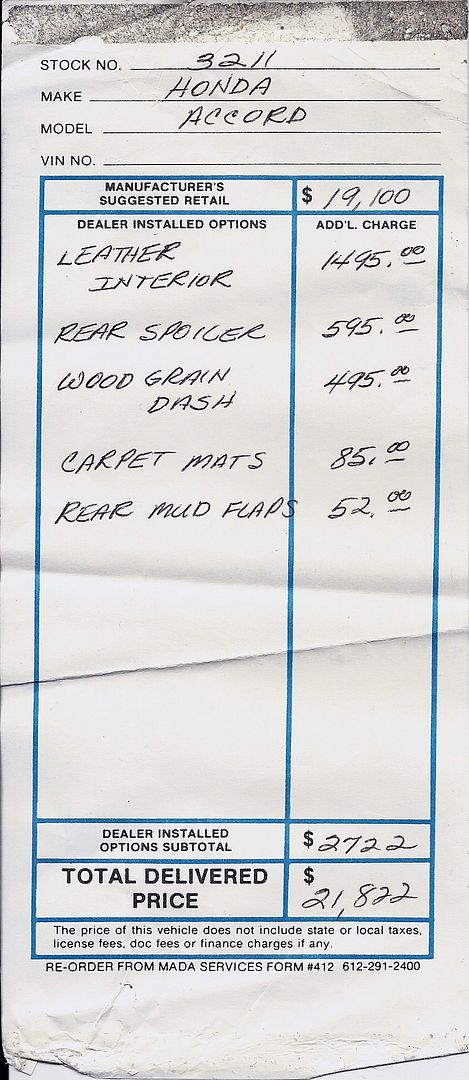 STOCK NO. 3211
MAKE HONDA
MODEL ACCORD
VIN NO.
MANUFACTURER'S
SUGGESTED RETAIL $ 19,100
DEALER INSTALLED OPTIONS ADD'L. CHARGE
LEATHER 1495.00
INTERIOR
REAR SPOILER 595.00
WOOD GRAIN 495.00
DASH
CARPET MATS 85.00
REAR MUD FLAPS 52.00
DEALER INSTALLED
OPTIONS SUBTOTAL $ 2722
TOTAL DELIVERED
PRICE $ 21,822
The price of this vehicle does not include state or local taxes,
license fees, doc fees or finance charges if any.
RE-ORDER FROM MADA SERVICES FORM #412 612-291-2400